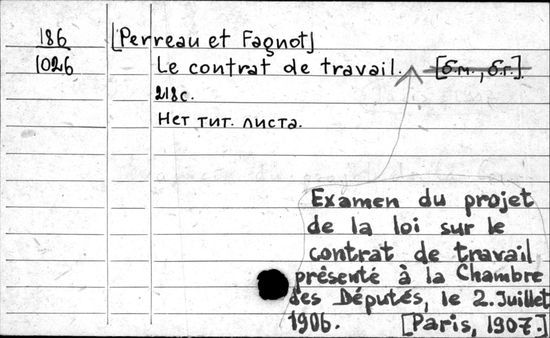 186
1026
[Perreau et Fagnot]
Le contrat de travail. [б.м., б.г.].
218с.
Нет тит. листа.
Examen du projet
de la loi sur le
contrat de travail
présenté à la Chambre
des Députés, le 2. Juillet
1906. [Paris, 1907.]